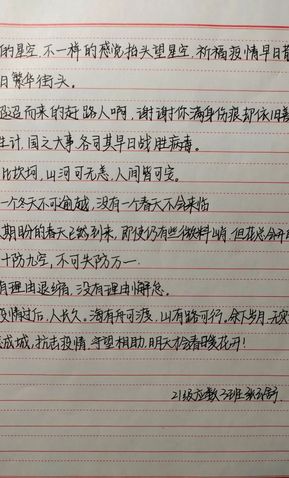 的星空,不一样的感觉抬头望星空,祈福疫情早日
日繁华街头。
而来的赶路人啊,谢谢你满身伤痕却依旧善
生计,国之大事,各司其早日战胜病毒。
比坎坷,山河可无恙,人间皆可安。
一个冬天不可逾越,没有一个春天不会来临
期盼的春天已然到来,即使仍有些料峭,但花总会开
十防九空,不可失防万一.
有理由退缩,没有理由懈怠。
疫情过后,人长久。海有舟可渡,山有路可行。余下岁月,无
成城,抗击疫情,守望相助,明天春暖花开!
21级应数3班